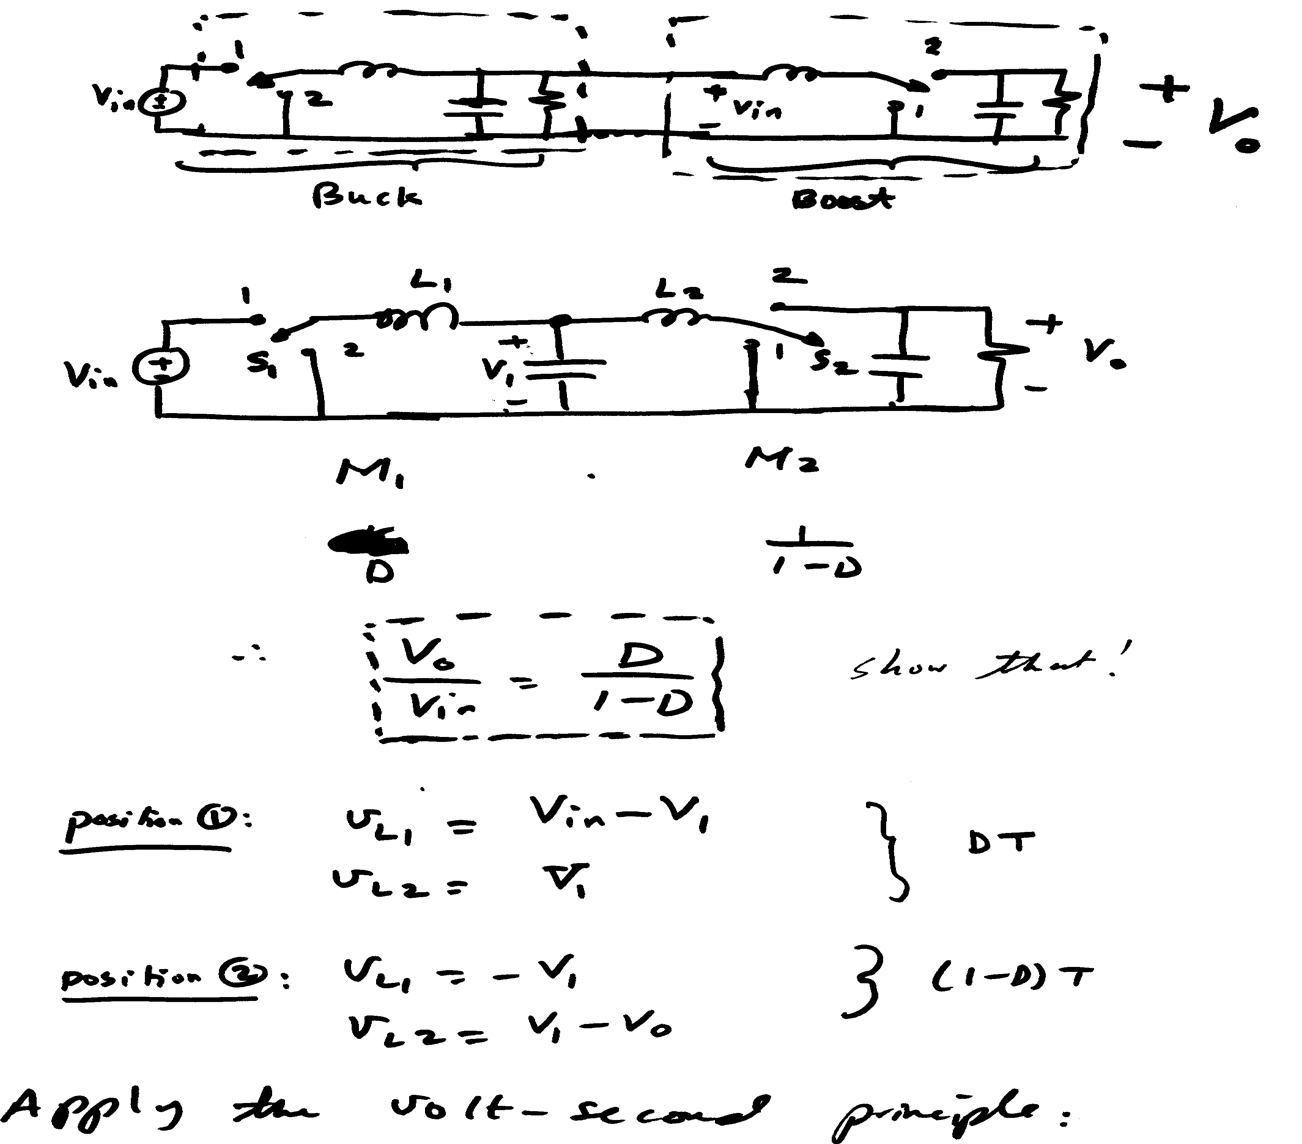 1 2
Vin 2 + Vin - 1 + Vo -
Buck Boost
L1 L2 2
1
Vin S1 2 + V1 - 1 S2 + Vo -
M1 M2
D 1/1-D
∴ Vo/Vin = D/1-D show that!
position ①: vL1 = Vin - V1 } DT
vL2 = V1
position ②: vL1 = - V1 } (1-D) T
vL2 = V1 - Vo
Apply the volt-second principle: